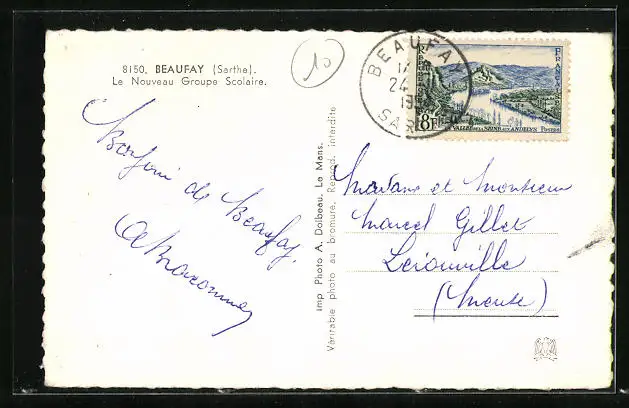 8150. BEAUFAY (Sarthe).
Le Nouveau Groupe Scolaire.
10
BEAUFAY
24
SAR
8F
VALLÉE DE LA SEINE AUX ANDELYS POSTES
Bonjour de Beaufay.
Imp Photo A. Dolbeau. Le Mans.
Véritable photo au bromure. Reprod. interdite
Madame et Monsieur
Marcel Gillet
Lérouville
(Meuse)